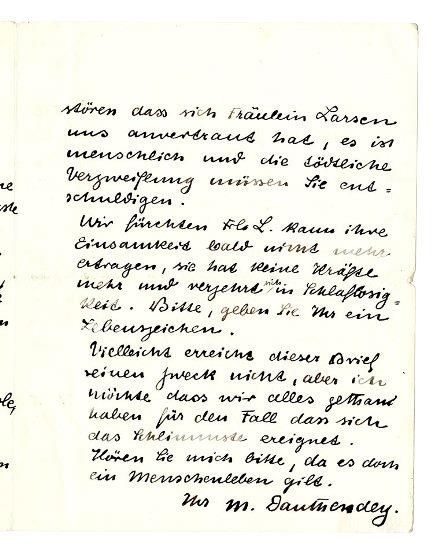 stören dass sich Fräulein Larsen
uns anvertraut hat, es ist
menschlich und die tödtliche
Verzweiflung müssen Sie ent=
schuldigen.
Wir fürchten Frl. L. kann ihre
Einsamkeit bald nicht mehr
ertragen, sie hat keine Kräfte
mehr und verzehrt sich in Schlaflosig=
keit. Bitte, geben Sie Ihr ein
Lebenszeichen.
Vielleicht erreicht dieser Brief
seinen Zweck nicht, aber ich
möchte dass wir alles gethan
haben für den Fall dass sich
das Schlimmste ereignet.
Hören Sie mich bitte, da es doch
ein Menschenleben gilt.
Ihr M. Dauthendey.